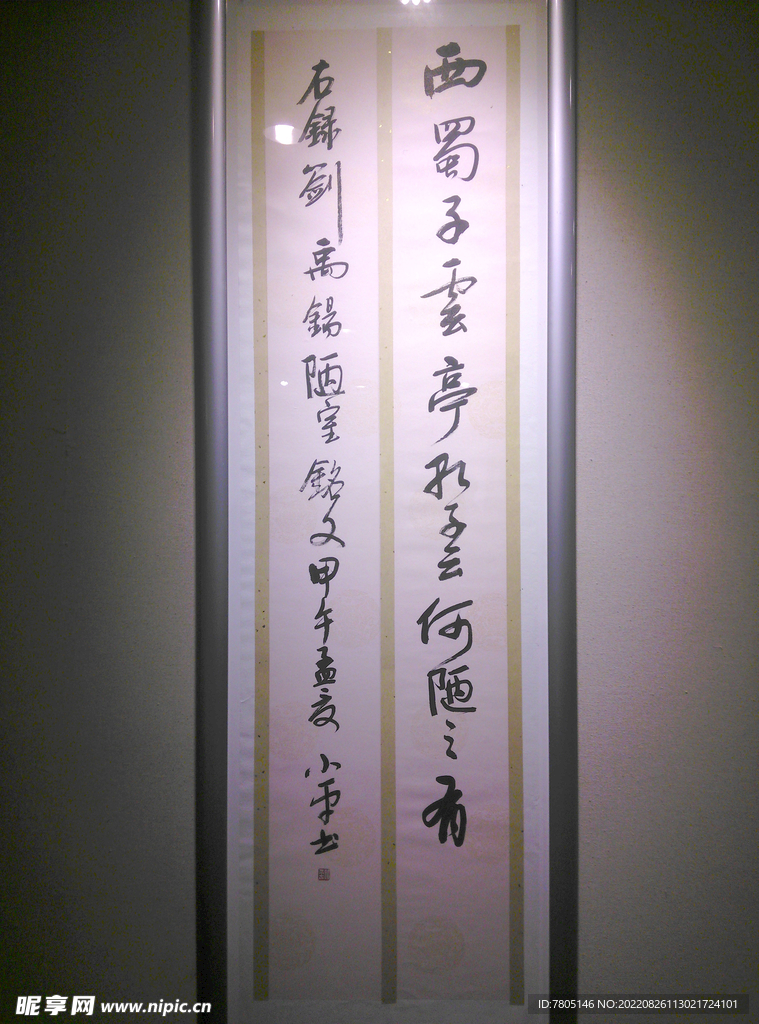 西蜀子雲亭孔子云何陋之有
右録劉禹錫陋室銘文甲午孟夏小平书
昵享网 www.nipic.cn
ID:7805146 NO:20220826113021724101